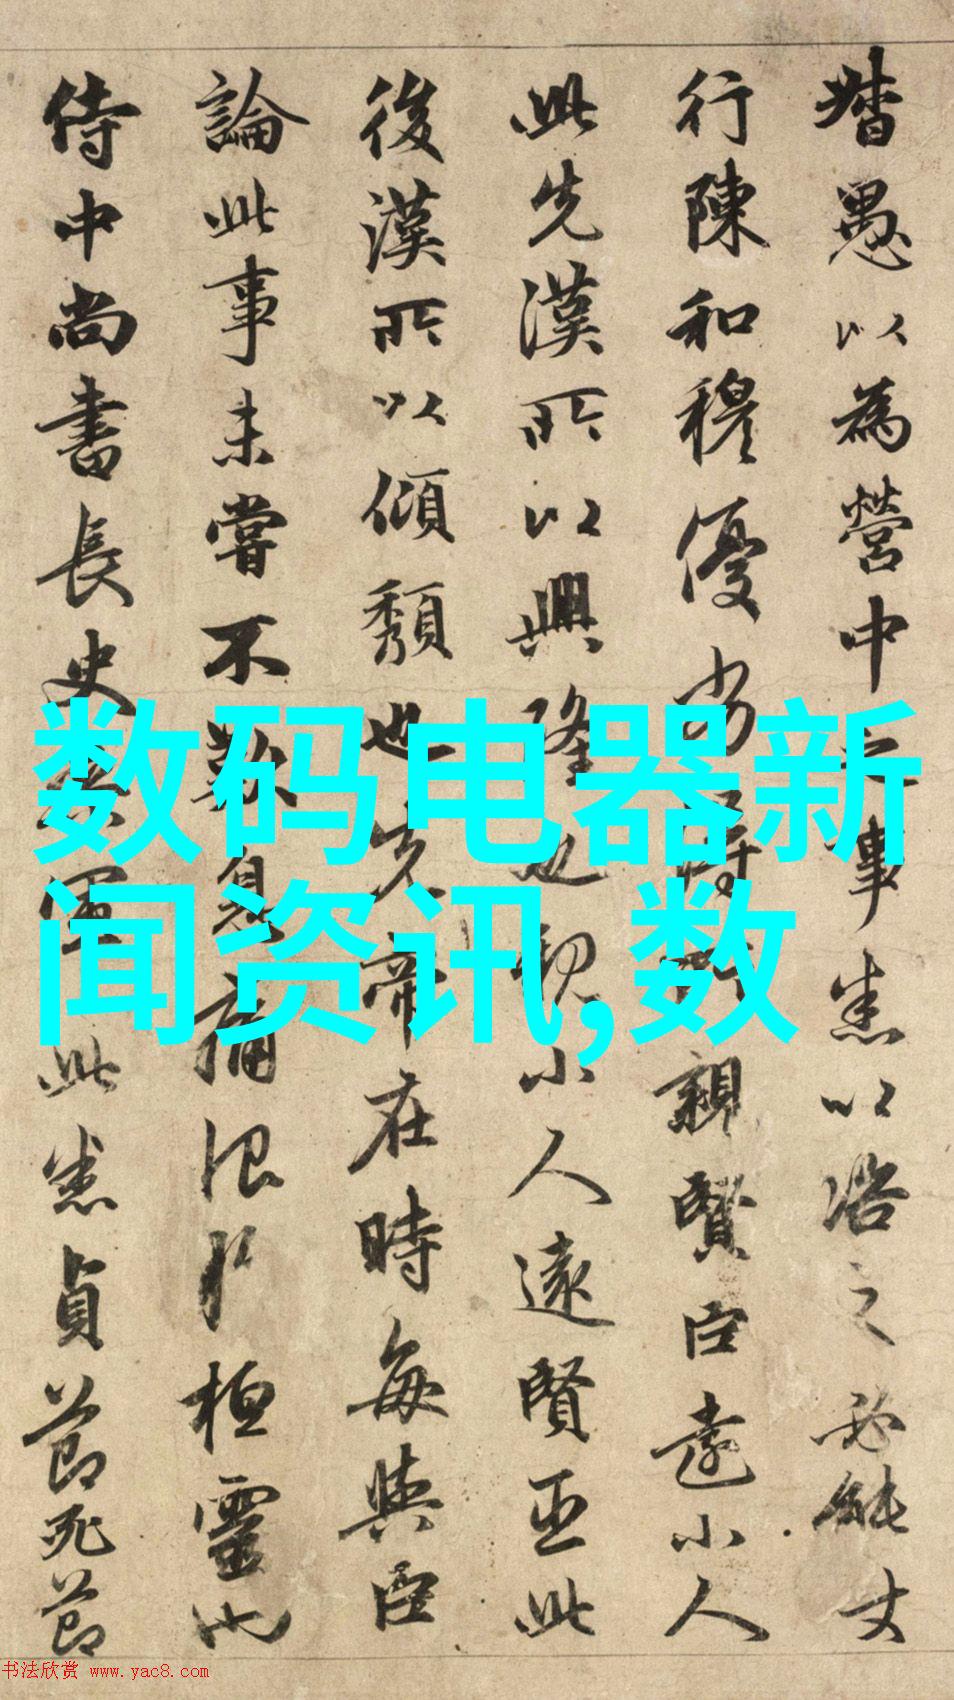 督愚以為營中之事悉以諮之必能丈
行陳和穆優劣得所親賢臣遠小人
此先漢所以興隆也親小人遠賢臣此
後漢所以傾頹也先帝在時每與臣
論此事未嘗不歎息痛恨於桓靈也
侍中尚書長史參軍此悉貞節死節
数码电器新
闻资讯,数
书法欣赏 www.yac8.com